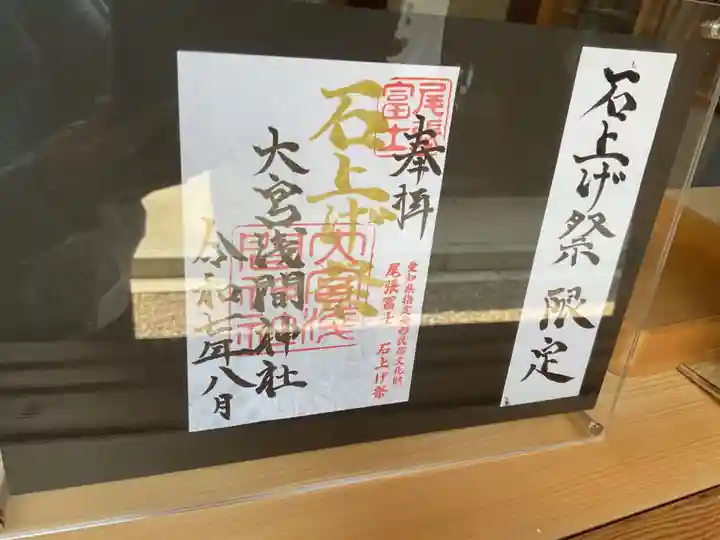 石上げ祭限定
尾張
富士
奉拝
愛知県指定無形民俗文化財
尾張富士 石上げ祭
石上げ祭
大宮浅間神社
令和七年八月